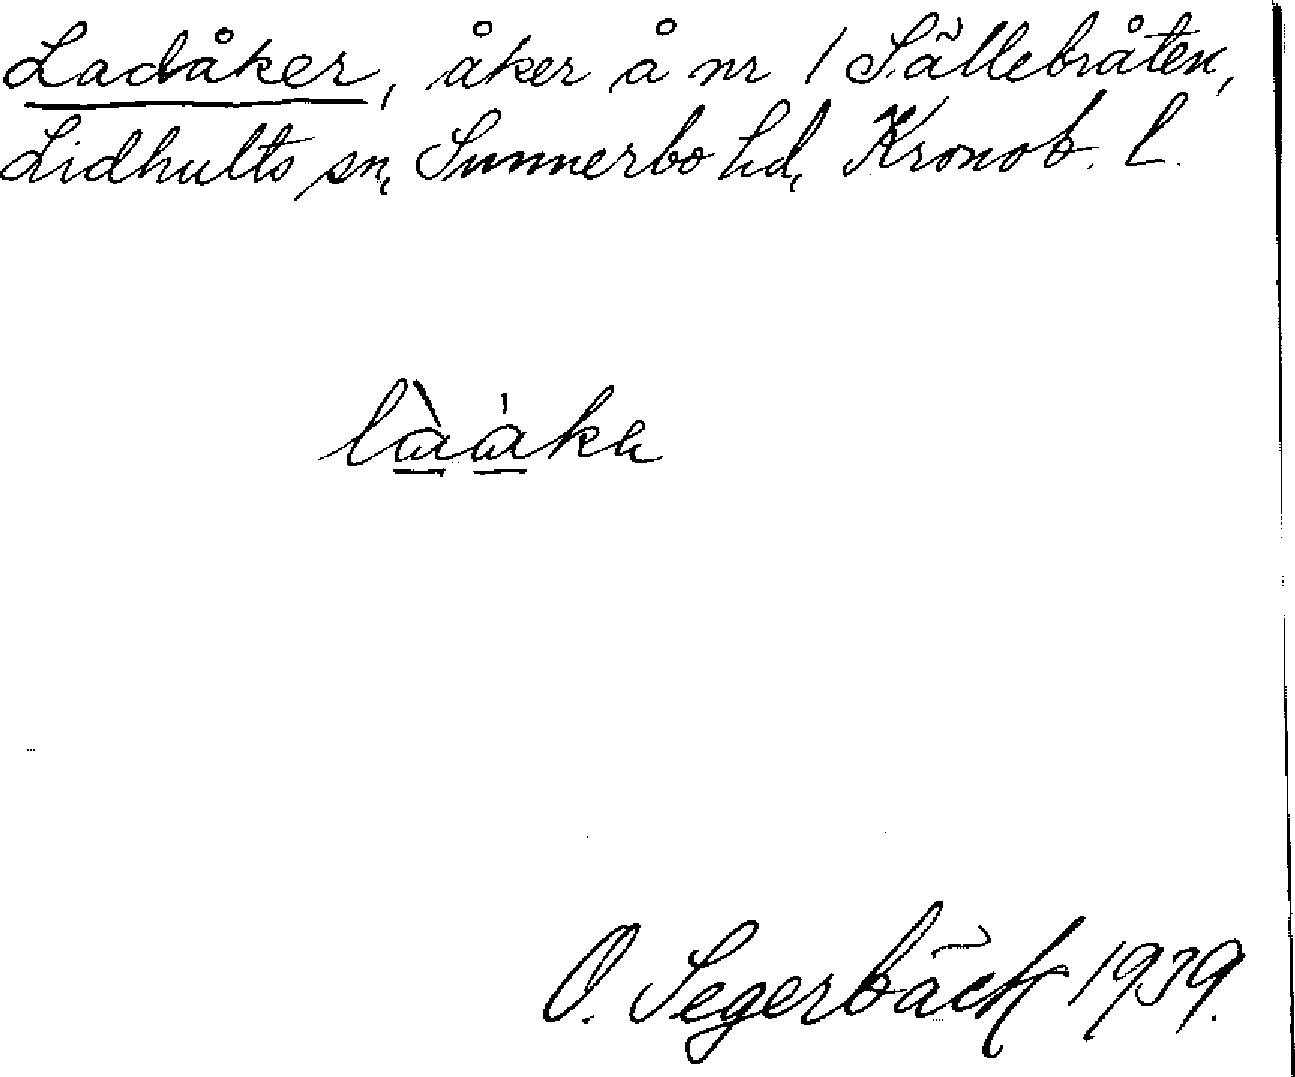 Ladåker, åker å nr 1 Sällebråten,
Lidhults sn, Sunnerbo hd, Kronob. l.
O. Segerbäck 1939.